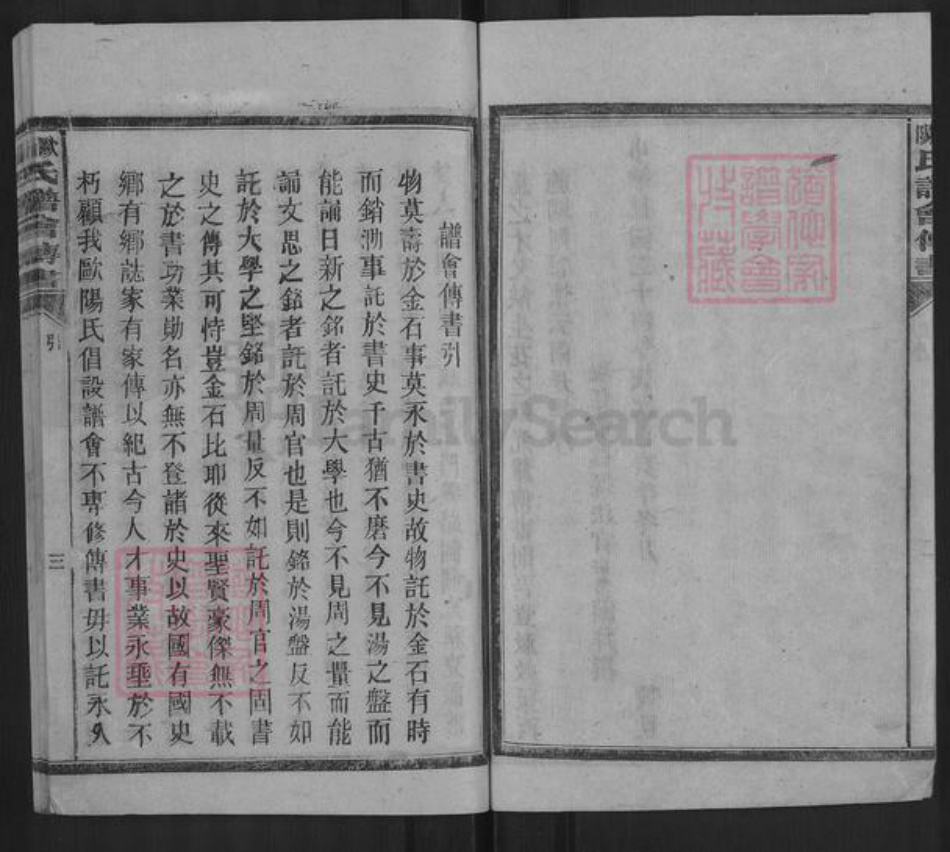 歐氏譜會傳書
譜會傳書引
物莫壽於金石事莫永於書史故物託於金石有時
而銷泐事託於書史千古猶不磨今不見湯之盤而
能誦日新之銘者託於大學也今不見周之量而能
誦文思之銘者託於周官也是則銘於湯盤反不如
託於大學之堅銘於周量反不如託於周官之固書
史之傳其可恃豈金石比耶從來聖賢豪傑無不載
之於書功業勛名亦無不登諸於史以故國有國史
鄉有鄉誌家有家傳以紀古今人才事業永垂於不
朽顧我歐陽氏倡設譜會不專修傳書毋以託永久
歐氏譜會傳書
引
三
FamilySearch